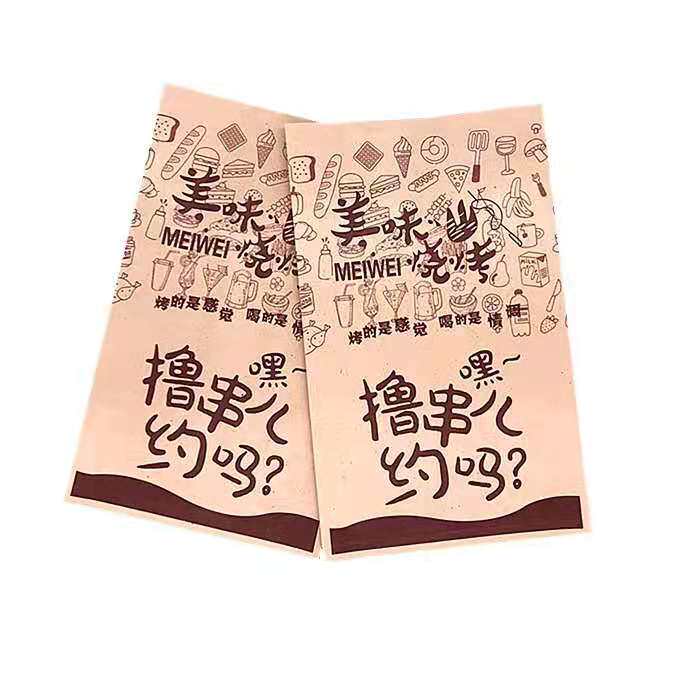 美味
MEIWEI 烧烤
烤的是感觉 喝的是情
嘿~
撸串儿
约吗?
美味
MEIWEI 烧烤
烤的是感觉 喝的是情调
MILK
嘿~
撸串儿
约吗?